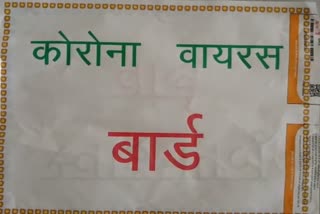 कोरोना वायरस
बार्ड